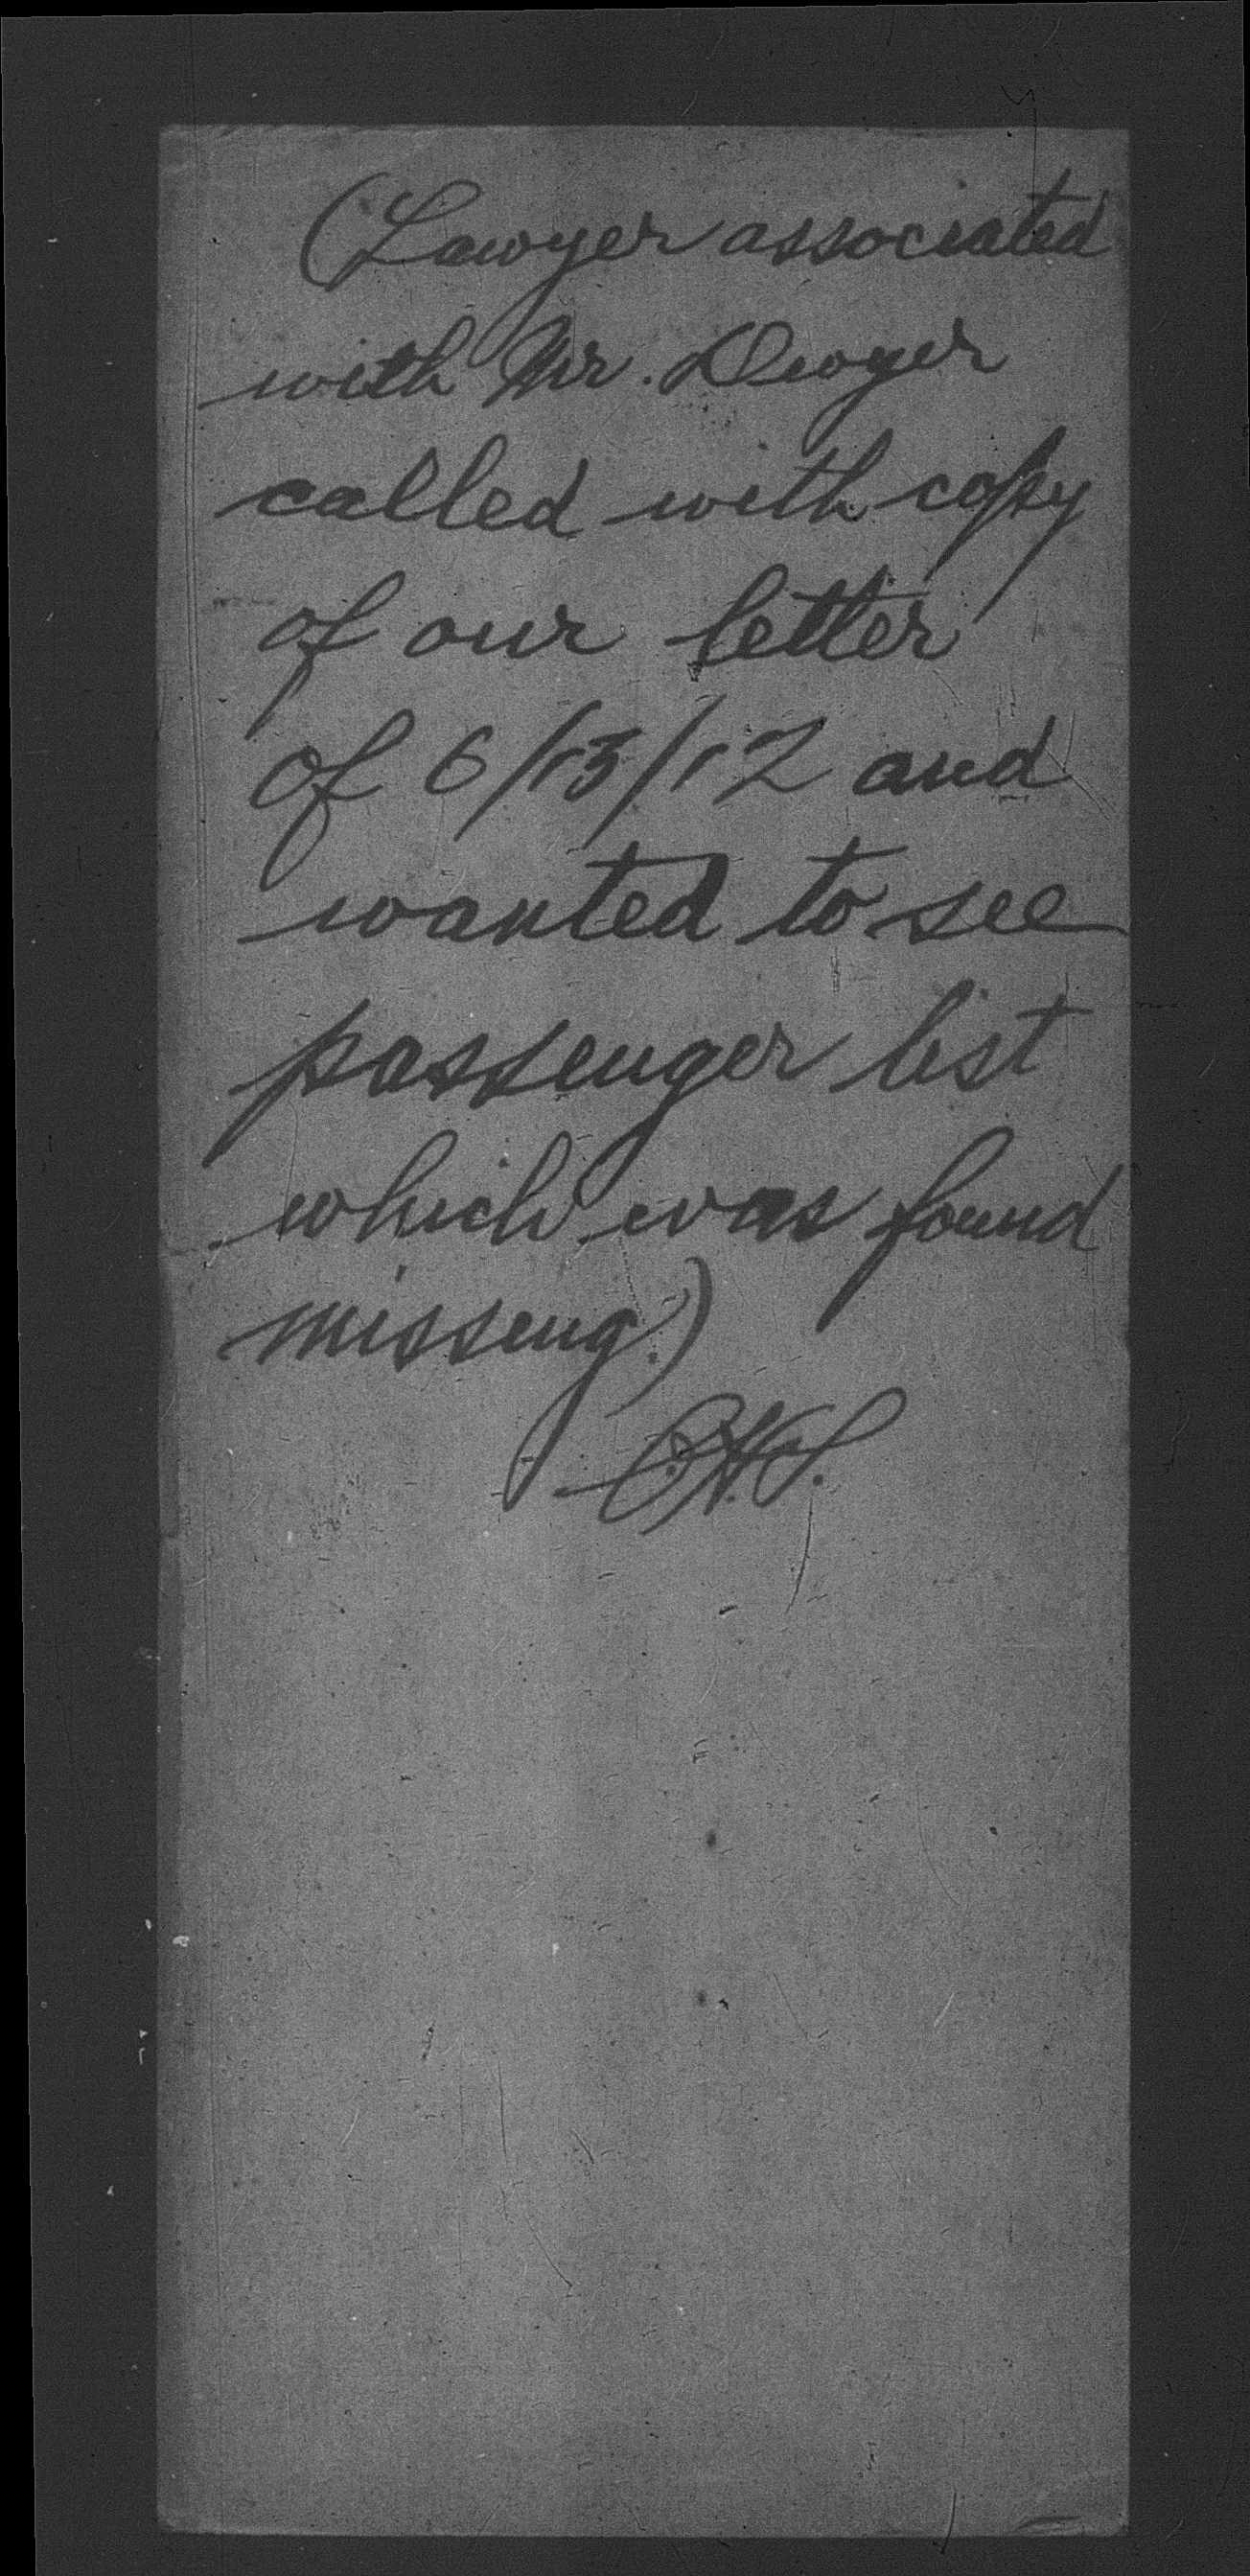 (Lawyer associated
with Mr. Dwyer
called with copy
of our letter
of 6/13/12 and
wanted to see
passenger list
which was found
missing.)